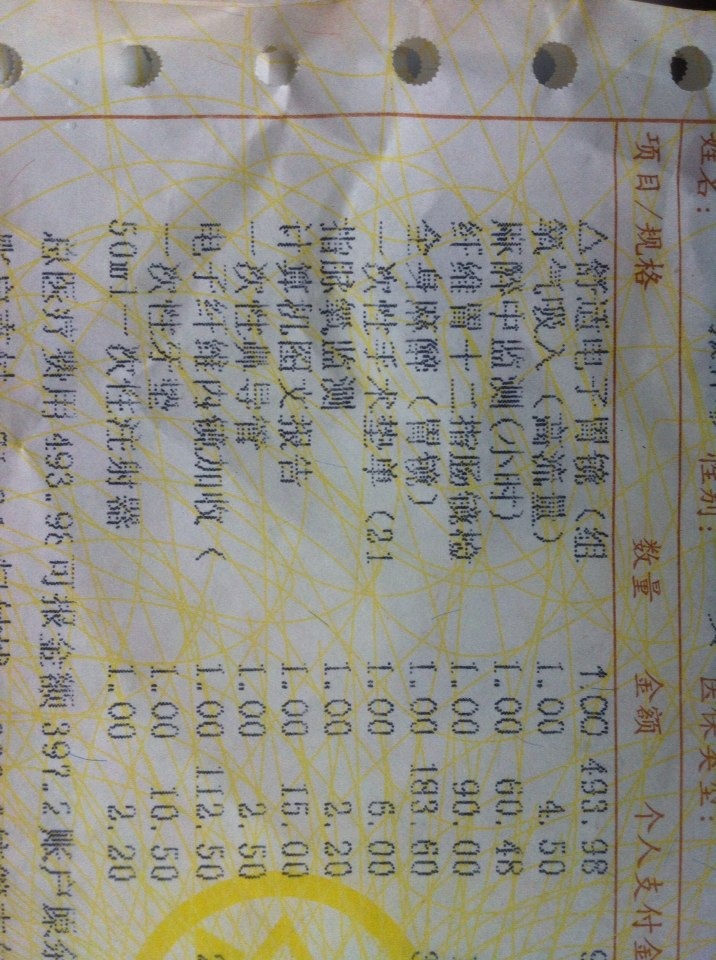 姓名: 性别: 医保类型:
项目/规格 数量 金额 个人支付金
△舒适电子胃镜（组 1.00 493.98
氧气吸入（高流量） 1.00 4.50
麻醉中监测(小时) 1.00 60.48
纤维胃十二指肠镜检 1.00 90.00
全身麻醉（胃镜） 1.00 183.60
一次性手术垫单（31 1.00 6.00
指脉氧监测 1.00 2.20
计算机图文报告 1.00 15.00
一次性鼻导管 1.00 2.50
电子纤维内镜加收（ 1.00 112.50
一次性牙垫 1.00 10.50
50ml一次性注射器 1.00 2.20
总医疗费用 493.98 可报金额 397.2 账户原余